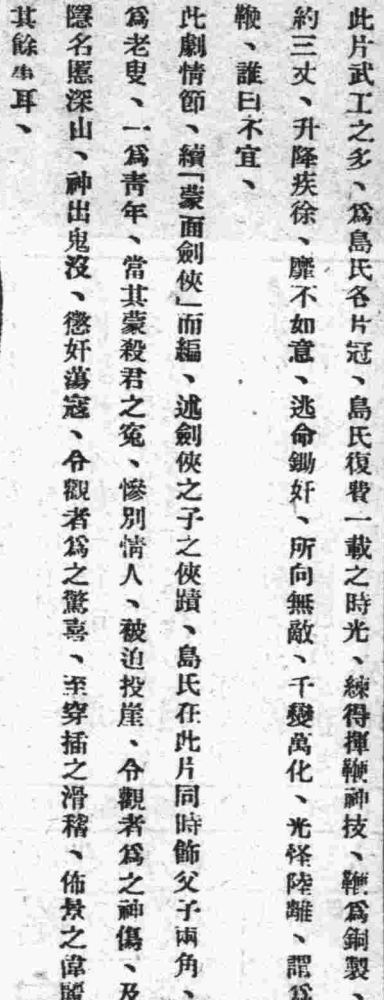 此片武工之多、爲島氏各片冠、島氏復費一載之時光、練得揮鞭神技、鞭爲銅製、
約三丈、升降疾徐、靡不如意、逃命鋤奸、所向無敵、千變萬化、光怪陸離、謂爲
鞭、誰曰不宜、
此劇情節、續「蒙面劍俠」而編、述劍俠之子之俠蹟、島氏在此片同時飾父子兩角、
爲老叟、一爲靑年、當其蒙殺君之寃、慘別情人、被迫投崖、令觀者爲之神傷、及
隱名匿深山、神出鬼沒、懲奸蕩寇、令觀者爲之驚喜、至穿插之滑稽、佈景之偉麗
其餘事耳、